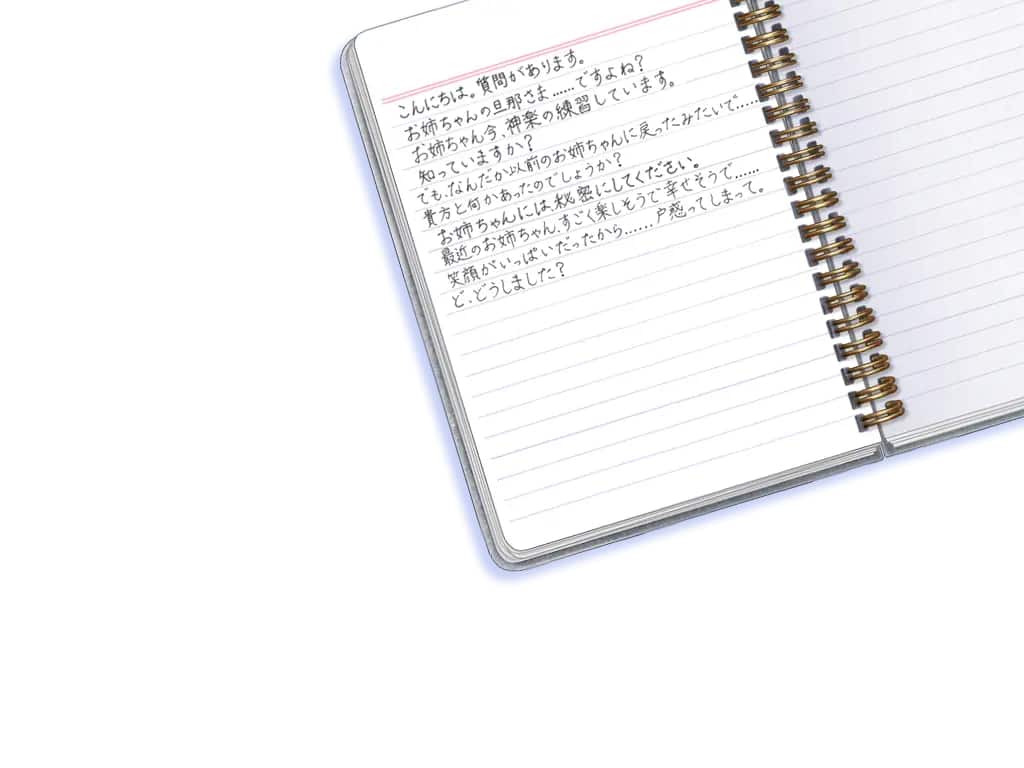 こんにちは。質問があります。
お姉ちゃんの旦那さま……ですよね？
お姉ちゃん今、神楽の練習しています。
知っていますか？
でも、なんだか以前のお姉ちゃんに戻ったみたいで……
貴方と何かあったのでしょうか？
お姉ちゃんには、秘密にしてください。
最近のお姉ちゃん、すごく楽しそうで幸せそうで……
笑顔がいっぱいだったから……戸惑ってしまって。
ど、どうしました？